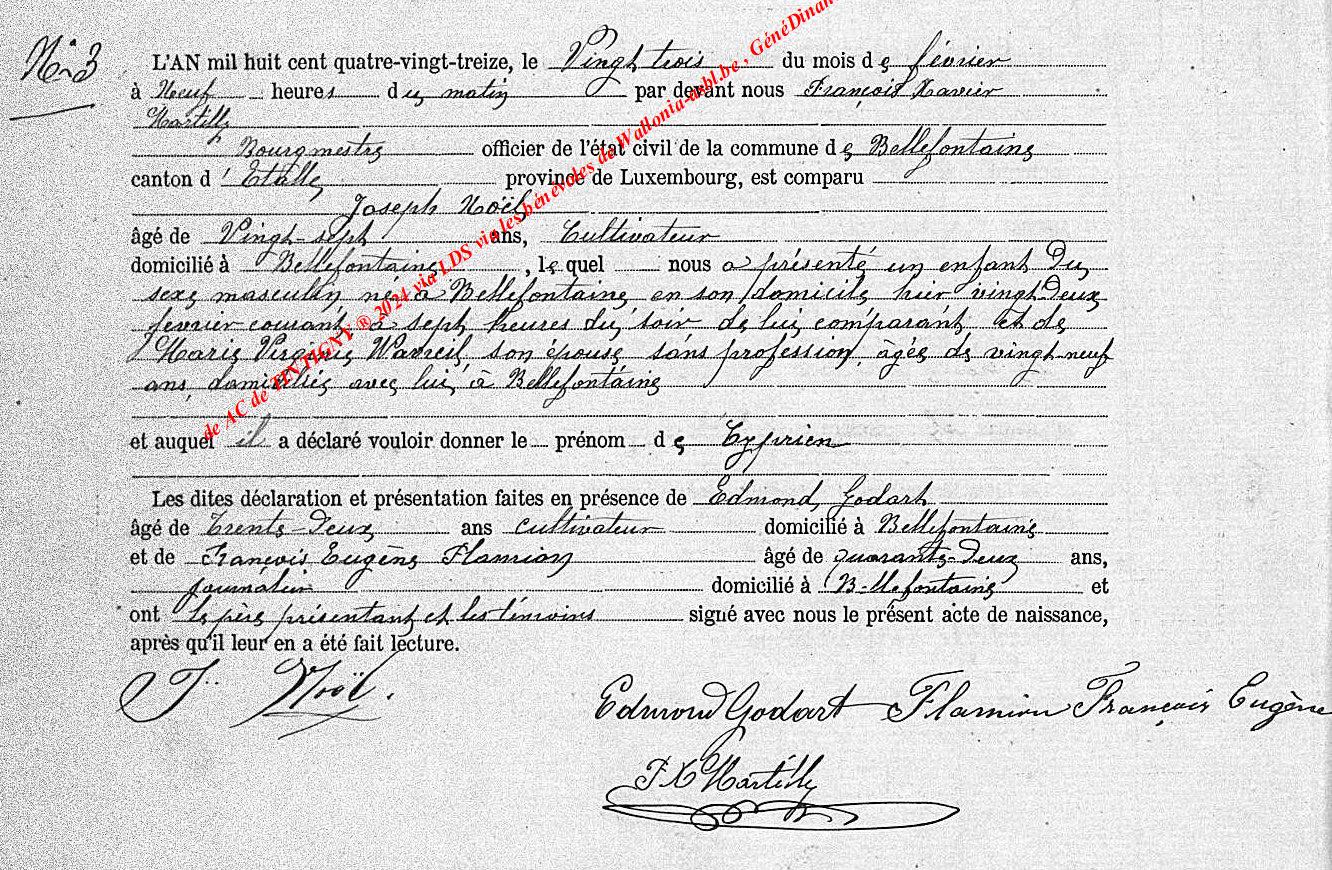 N° 3
L'AN mil huit cent quatre-vingt-treize, le Vingt trois du mois de février
à Neuf heures du matin par devant nous François Xavier
Martilly
Bourgmestre officier de l'état civil de la commune de Bellefontaine
canton d' Etalle province de Luxembourg, est comparu
Joseph Noël
âgé de Vingt-sept ans, Cultivateur
domicilié à Bellefontaine, lequel nous a présenté un enfant du
sexe masculin né à Bellefontaine en son domicile hier vingt-deux
février courant à sept heures du soir de lui comparant et de
Marie Virginie son épouse sans profession, âgée de vingt-neuf
ans domiciliée avec lui à Bellefontaine
et auquel il a déclaré vouloir donner le prénom de Cyprien
Les dites déclaration et présentation faites en présence de Edmond Godart
âgé de Trente-Deux ans cultivateur domicilié à Bellefontaine
et de François Eugène Flamion âgé de quarante-Deux ans,
journalier domicilié à Bellefontaine et
ont le père présentant et les témoins signé avec nous le présent acte de naissance,
après qu'il leur en a été fait lecture.
J. Noël.
Edmond Godart Flamion François Eugène
F X Martilly
de AC de TINTIGNY ® 2024 via LDS via les bénévoles de Wallonia-asbl.be, GénéDinan